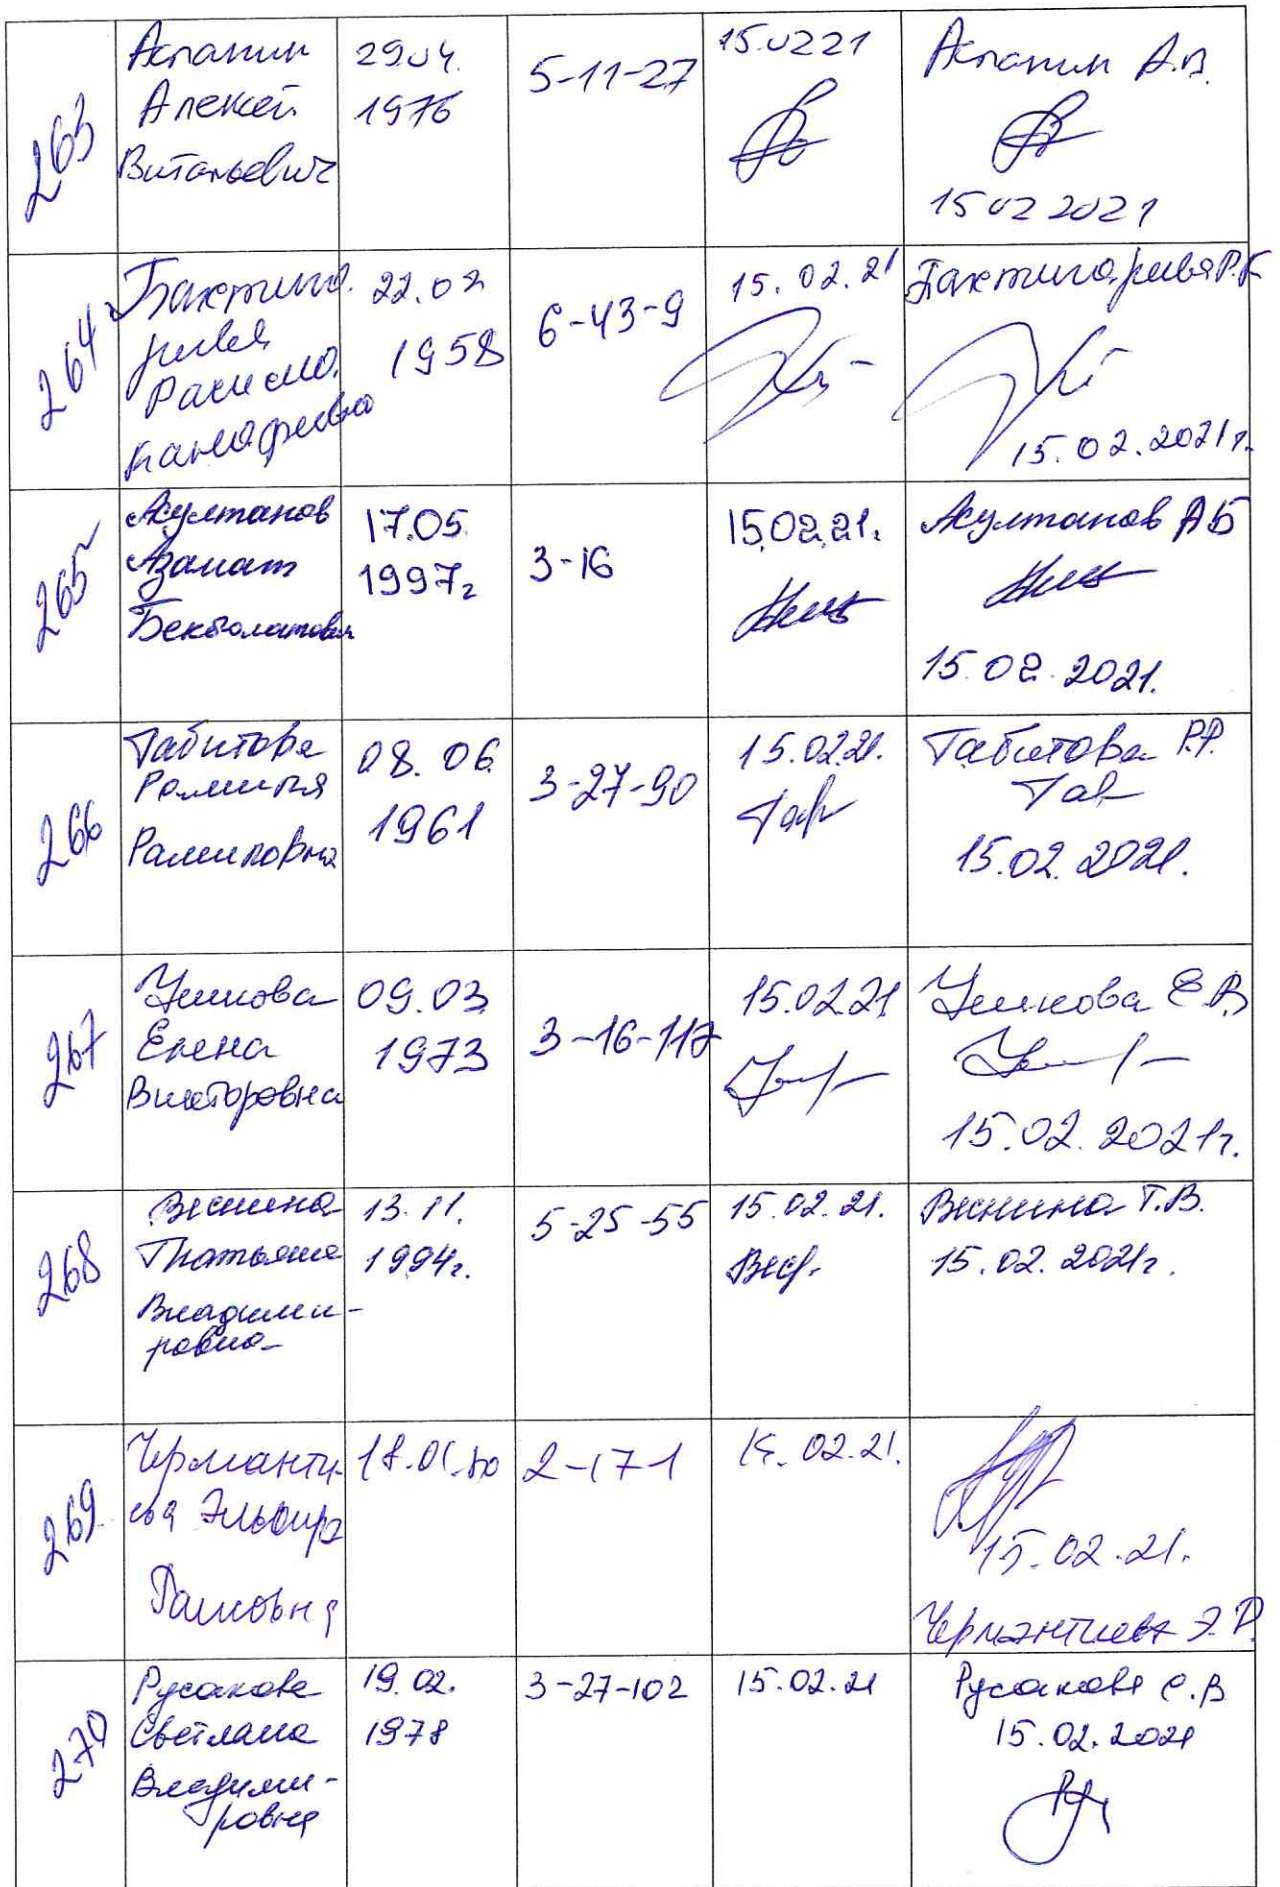 263
Аспанин
Алексей
Витальевич
29.04.
1976
5-11-27
15.0221
Аспанин А.В.
15 02 2021
264
22.02
1958
6-43-9
15.02.21
15.02.2021г.
265
Асултанов
Азамат
17.05.
1997г
3-16
15.02.21.
Асултанов АБ
15.02.2021.
266
Габитова
Рамиловна
08.06
1961
3-27-90
15.02.21.
Габитова Р.Р.
Габ
15.02.2021.
267
Елена
Викторовна
09.03
1973
3-16-117
15.02.21
Е.В.
15.02.2021г.
268
Веснина
Татьяна
Владими-
ровна
13.11.
1994г.
5-25-55
15.02.21.
Веснина Т.В.
15.02.2021г.
269
Чермянти-
ева Эльвира
2-171
15.02.21.
15.02.21.
Чермянтиева Э.Р.
270
Русакова
Светлана
Владими-
ровна
19.02.
1978
3-27-102
15.02.21
Русакова С.В
15.02.2021